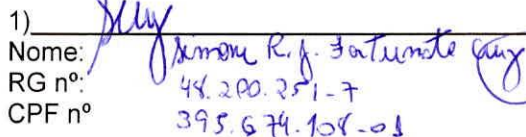 1)
Nome: Simone R. J. Fortunato Cruz
RG nº: 48.200.251-7
CPF nº 395.674.108-01